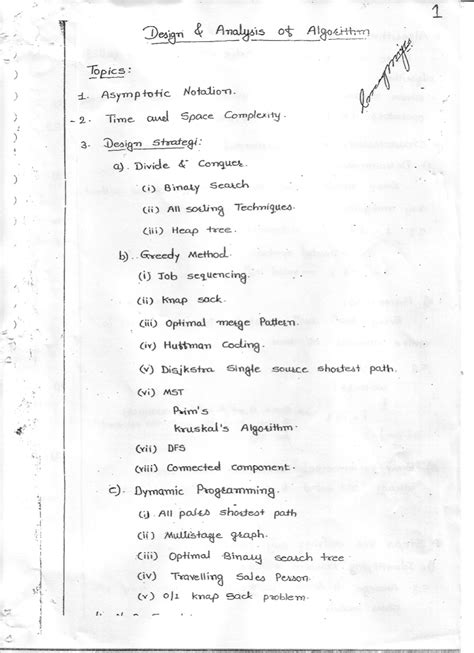 1
Design & Analysis of Algorithm
Topics:
1. Asymptotic Notation.
2. Time and Space Complexity.
3. Design Strategi:
a). Divide & Conquer.
(i) Binary Search
(ii) All sorting Techniques.
(iii) Heap tree.
b). Greedy Method.
(i) Job sequencing.
(ii) Knap sack.
(iii) Optimal merge Pattern.
(iv) Huffman Coding.
(v) Disjkstra Single source shortest path.
(vi) MST
Prim's
Kruskal's Algorithm.
(vii) DFS
(viii) Connected component.
c). Dynamic Programming.
(i) All pairs shortest path
(ii) Multistage graph.
(iii) Optimal Binary search tree
(iv) Travelling Sales Person.
(v) 0/1 knap sack problem.